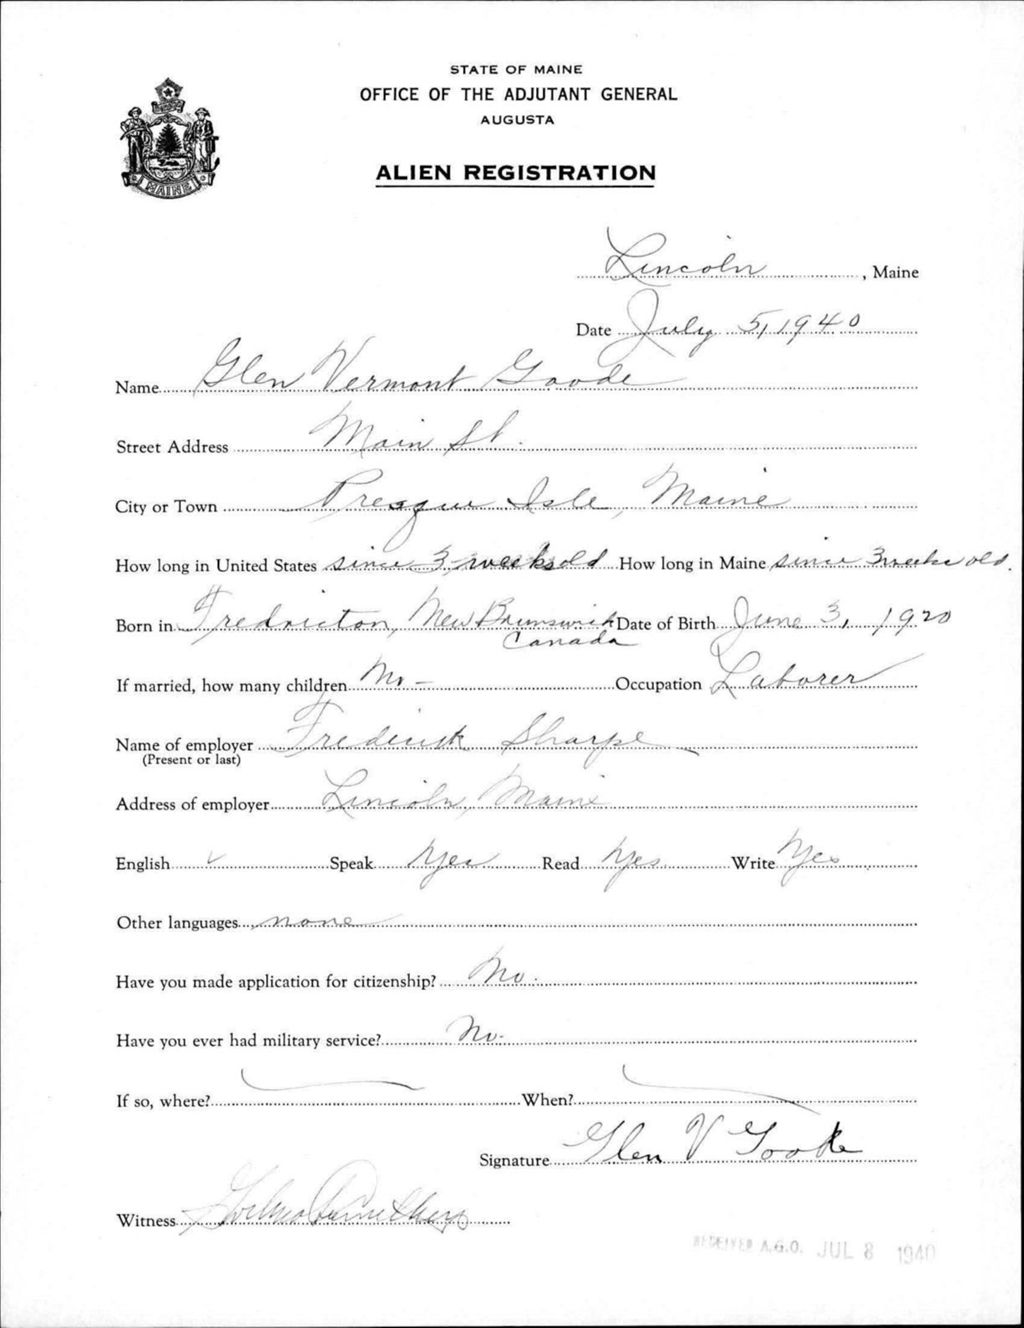 STATE OF MAINE
OFFICE OF THE ADJUTANT GENERAL
AUGUSTA
MAINE
ALIEN REGISTRATION
Lincoln, Maine
Date July 5, 1940
Name Glen Vermont Goode
Street Address Main St.
City or Town Presque Isle, Maine
How long in United States since 3 weeks old How long in Maine since 3 weeks old.
Born in Fredricton, New Brunswick Date of Birth June 3, 1920
Canada
If married, how many children No - Occupation Laborer
Name of employer Frederick Sharpe
(Present or last)
Address of employer Lincoln, Maine
English ✓ Speak Yes Read Yes Write Yes
Other languages none
Have you made application for citizenship? No.
Have you ever had military service? No.
If so, where? When?
Signature Glen V
Witness
RECEIVED A.G.O. JUL 8 1940